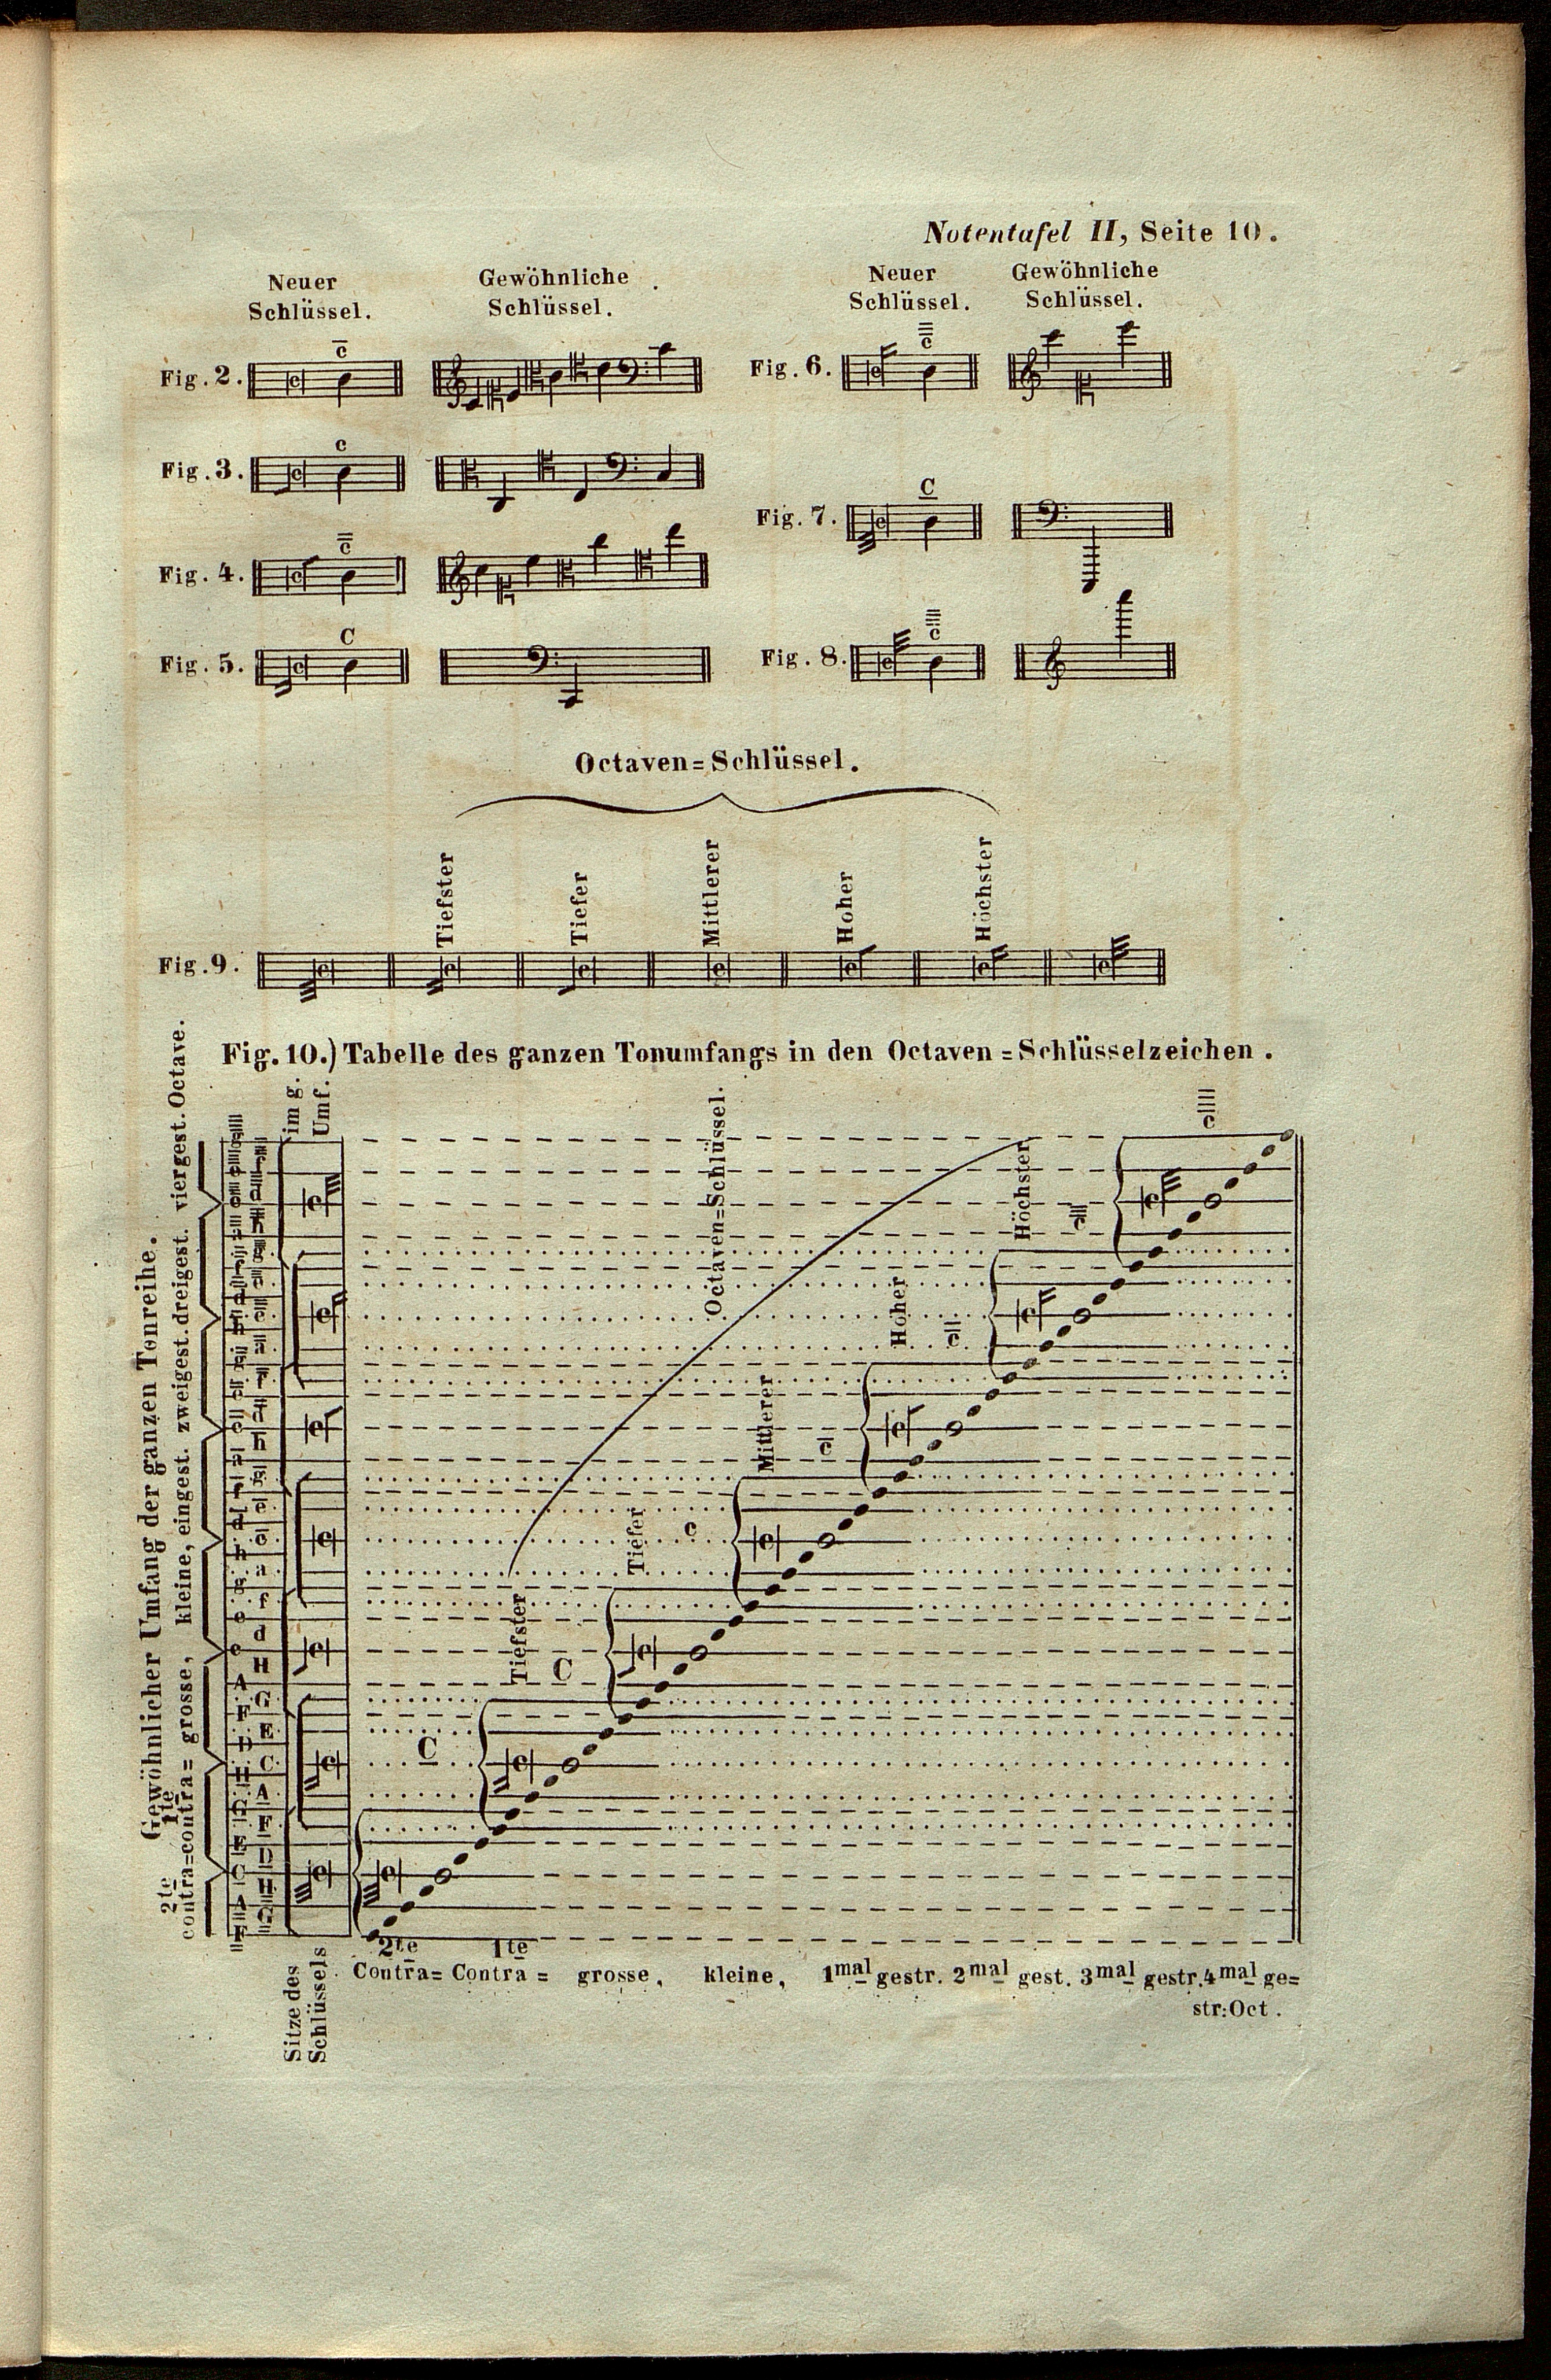 Notentafel II, Seite 10.
Neuer
Schlüssel.
Gewöhnliche
Schlüssel.
Neuer
Schlüssel.
Gewöhnliche
Schlüssel.
Fig. 2.
c̅
Fig. 3.
c
Fig. 4.
Fig. 5.
C
Fig. 6.
Fig. 7.
C
Fig. 8.
Octaven=Schlüssel.
Tiefster
Tiefer
Mittlerer
Hoher
Höchster
Fig. 9.
Fig. 10.) Tabelle des ganzen Tonumfangs in den Octaven=Schlüsselzeichen.
Gewöhnlicher Umfang der ganzen Tonreihe.
2te contra= 1te contra= grosse, kleine, eingest. zweigest. dreigest. viergest. Octave.
im g.
Umf.
Octaven=Schlüssel.
Höchster
Hoher
Mittlerer
c̅
Tiefer
c
Tiefster
C
C
Sitze des
Schlüssels
2te Contra= 1te Contra= grosse, kleine, 1mal gestr. 2mal gest. 3mal gestr. 4mal ge=
str: Oct.